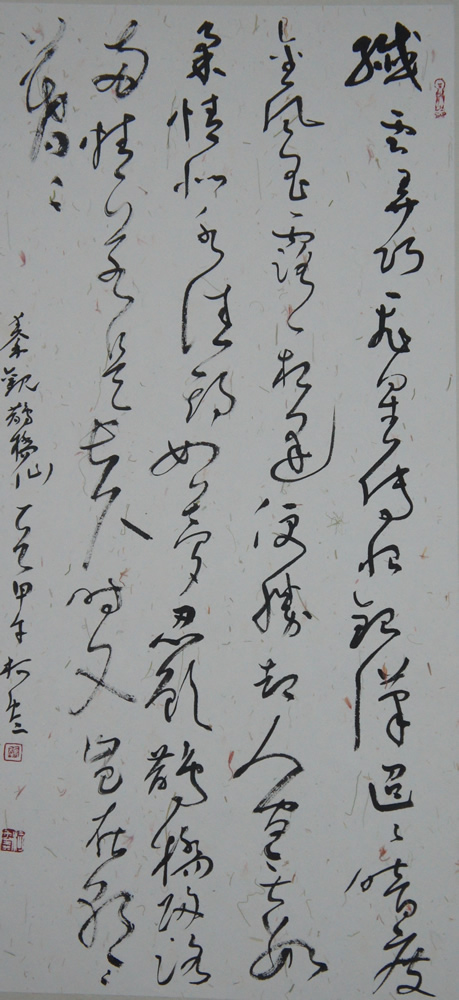 纖雲弄巧飛星傳恨銀漢迢々暗度
金風玉露一相逢便勝却人間無數
柔情似水佳期如夢忍顧鵲橋歸路
兩情若是長久時又豈在朝々
暮々
秦觀鵲橋仙 甲午